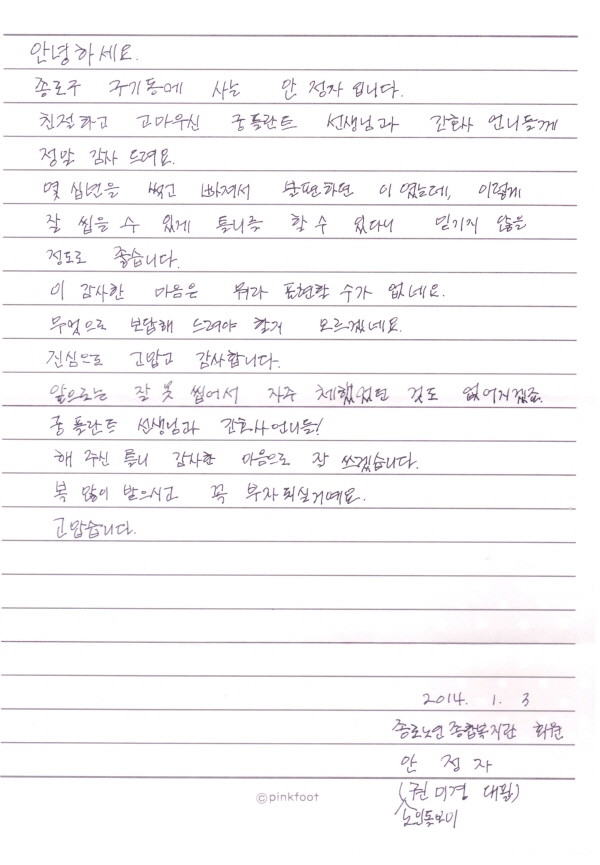 안녕하세요.
종로구 구기동에 사는 안 정자 입니다.
친절하고 고마우신 굿플란트 선생님과 간호사 언니들께
정말 감사 드려요.
몇 십년을 썩고 빠져서 불편하던 이 였는데, 이렇게
잘 씹을 수 있게 틀니를 할 수 있다니 믿기지 않을
정도로 좋습니다.
이 감사한 마음은 뭐라 표현할 수가 없네요.
무엇으로 보답해 드려야 할지 모르겠네요.
진심으로 고맙고 감사합니다.
앞으로는 잘 못 씹어서 자주 체했었던 것도 없어지겠죠.
굿플란트 선생님과 간호사언니들!
해 주신 틀니 감사한 마음으로 잘 쓰겠습니다.
복 많이 받으시고 꼭 부자되실거예요.
고맙습니다.
2014. 1. 3
종로노인종합복지관 회원
안 정 자
(권미경 대필)
노인돌보미
©pinkfoot